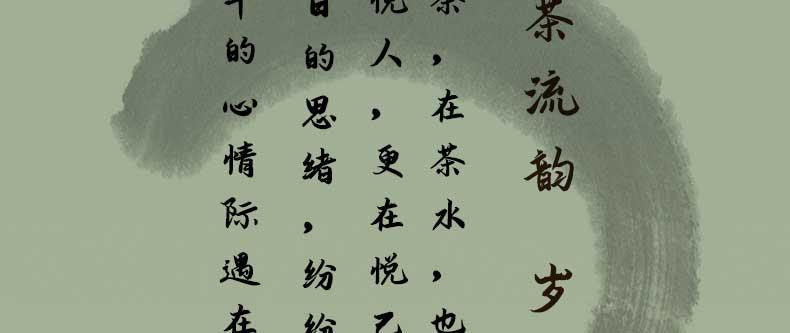 茶流韵 岁
茶，在茶水，也
悦人，更在悦己
日的思绪，纷纷
的心情际遇在